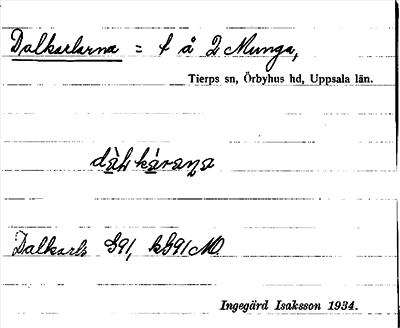 Dalkarlarna = t å 2 Munga,
Tierps sn, Örbyhus hd, Uppsala län.
dàḷkárana
Dalkarls §91, k§91 MO.
Ingegärd Isaksson 1934.